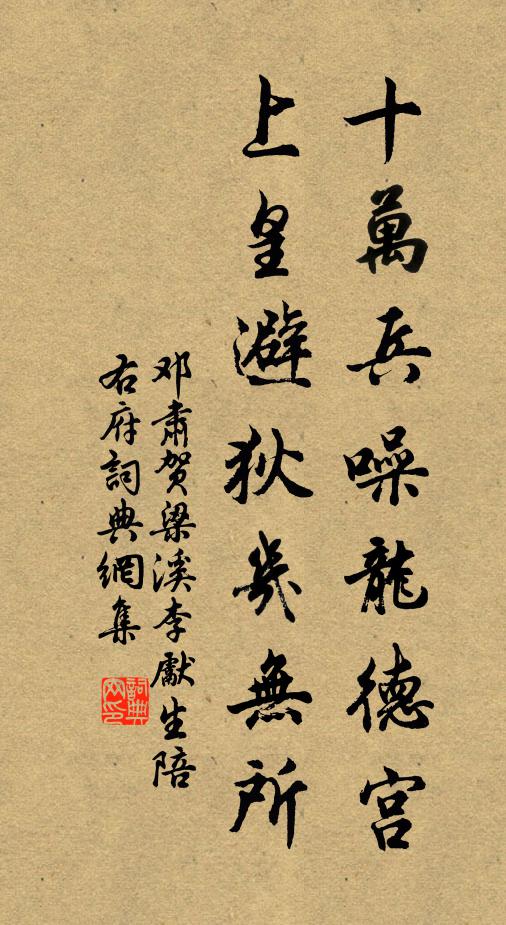 十萬兵噪龍德宫
上皇避狄幾無所
邓肅贺梁溪李獻生陪
右府詞典網集
詞典网印